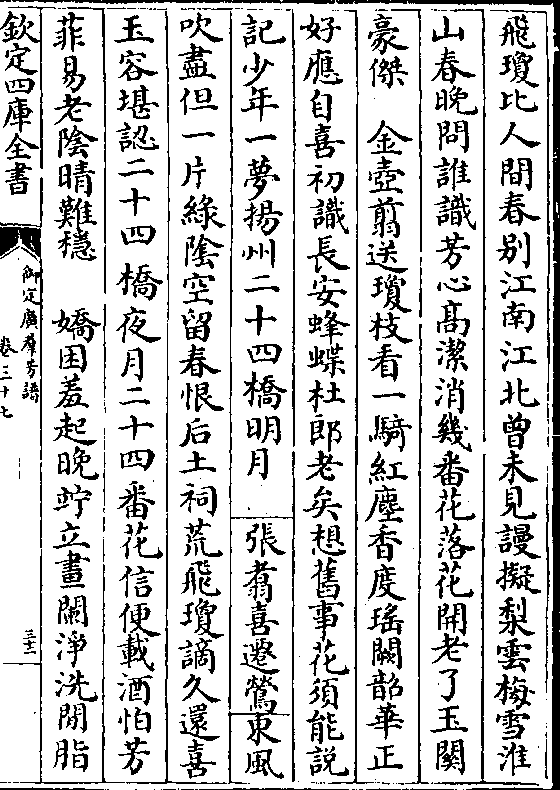 飛瓊比人間春别江南江北曾未見謾擬梨雲梅雪淮
山春晚問誰識芳心高潔消幾番花落花開老了玉關
豪傑　金壺翦送瓊枝看一騎紅塵香度瑤闕韶華正
好應自喜初識長安蜂蝶杜郎老矣想舊事花須能説
記少年一夢揚州二十四橋明月　張翥喜遷鶯東風
吹盡但一片綠陰空留春恨后土祠荒飛瓊謫久還喜
玉容堪認二十四橋夜月二十四番花信便載酒怕芳
菲易老陰晴難穩　嬌困羞起晚竚立畫闌淨洗閒脂
欽定四庫全書
御定廣羣芳譜
卷三十七
三十二